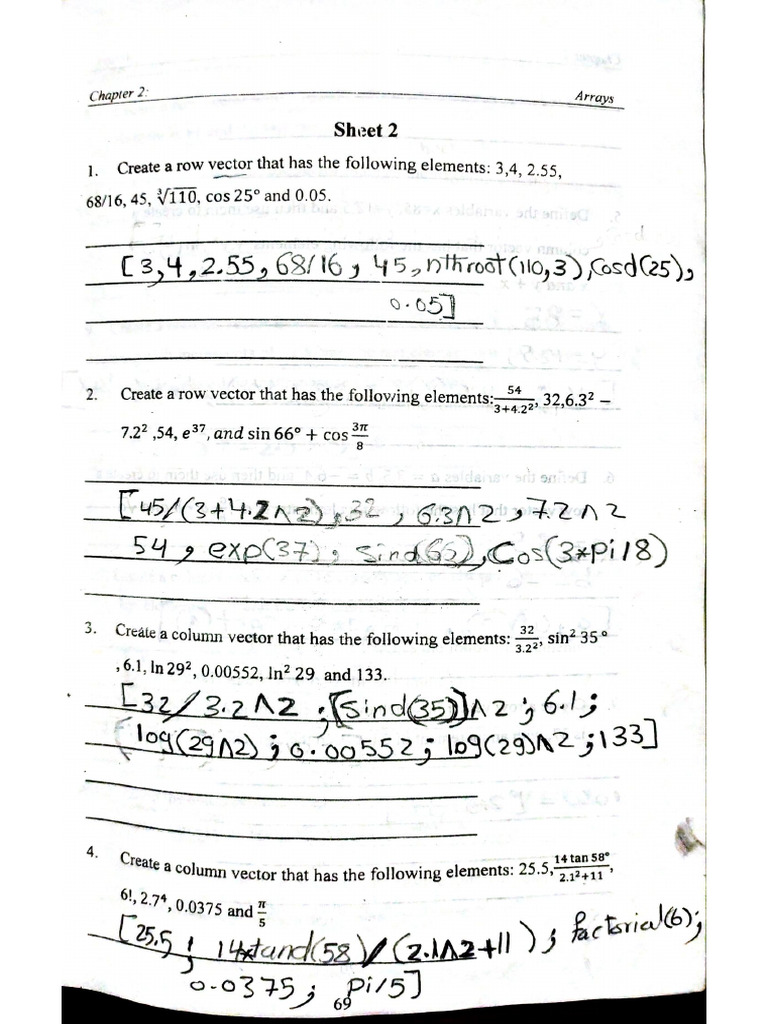 Chapter 2:
Arrays
Sheet 2
1. Create a row vector that has the following elements: 3,4, 2.55,
68/16, 45, ∛110, cos 25° and 0.05.
[3,4,2.55,68/16, 45,nthroot(110,3),Cosd(25),
0.05]
2. Create a row vector that has the following elements: 54/(3+4.2²), 32,6.3² −
7.2² ,54, e³⁷, and sin 66° + cos 3π/8
[45/(3+4.2^2),32, 6.3^2, 7.2^2
54, exp(37), Sind(66), Cos(3*Pi/8)
3. Create a column vector that has the following elements: 32/3.2², sin² 35°
,6.1, ln 29², 0.00552, ln² 29 and 133.
[32/3.2^2 ;[Sind(35)]^2 ; 6.1;
log(29^2) ; 0.00552; log(29)^2 ;133]
4. Create a column vector that has the following elements: 25.5, 14 tan 58°/(2.1²+11),
6!, 2.7⁴, 0.0375 and π/5
[25.5; 14*tand(58)/(2.1^2+11); factorical(6);
0.0375; Pi/5]
69